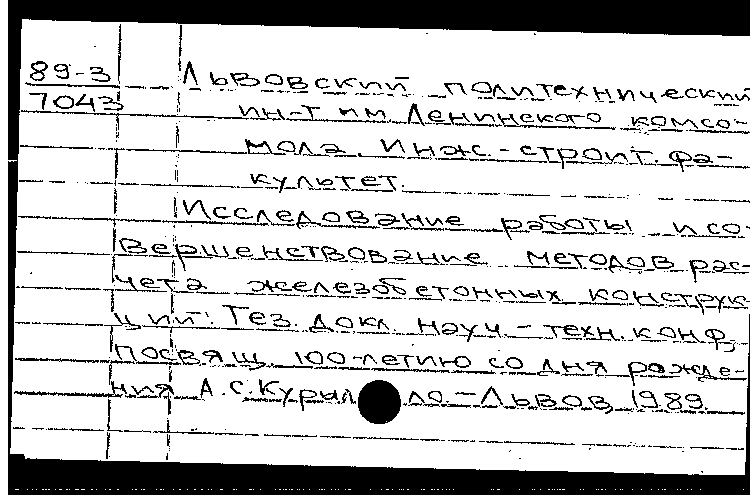 89-3 Львовский политехнический
7043 ин-т им. Ленинского комсо-
мола. Инж.-строит. фа-
культет.
Исследование работы и со-
вершенствование методов рас-
чета железобетонных конструк-
ций: Тез. докл. науч.-техн. конф.,
посвящ. 100-летию со дня рожде-
ния А.С. Курыл ло. - Львов, 1989.